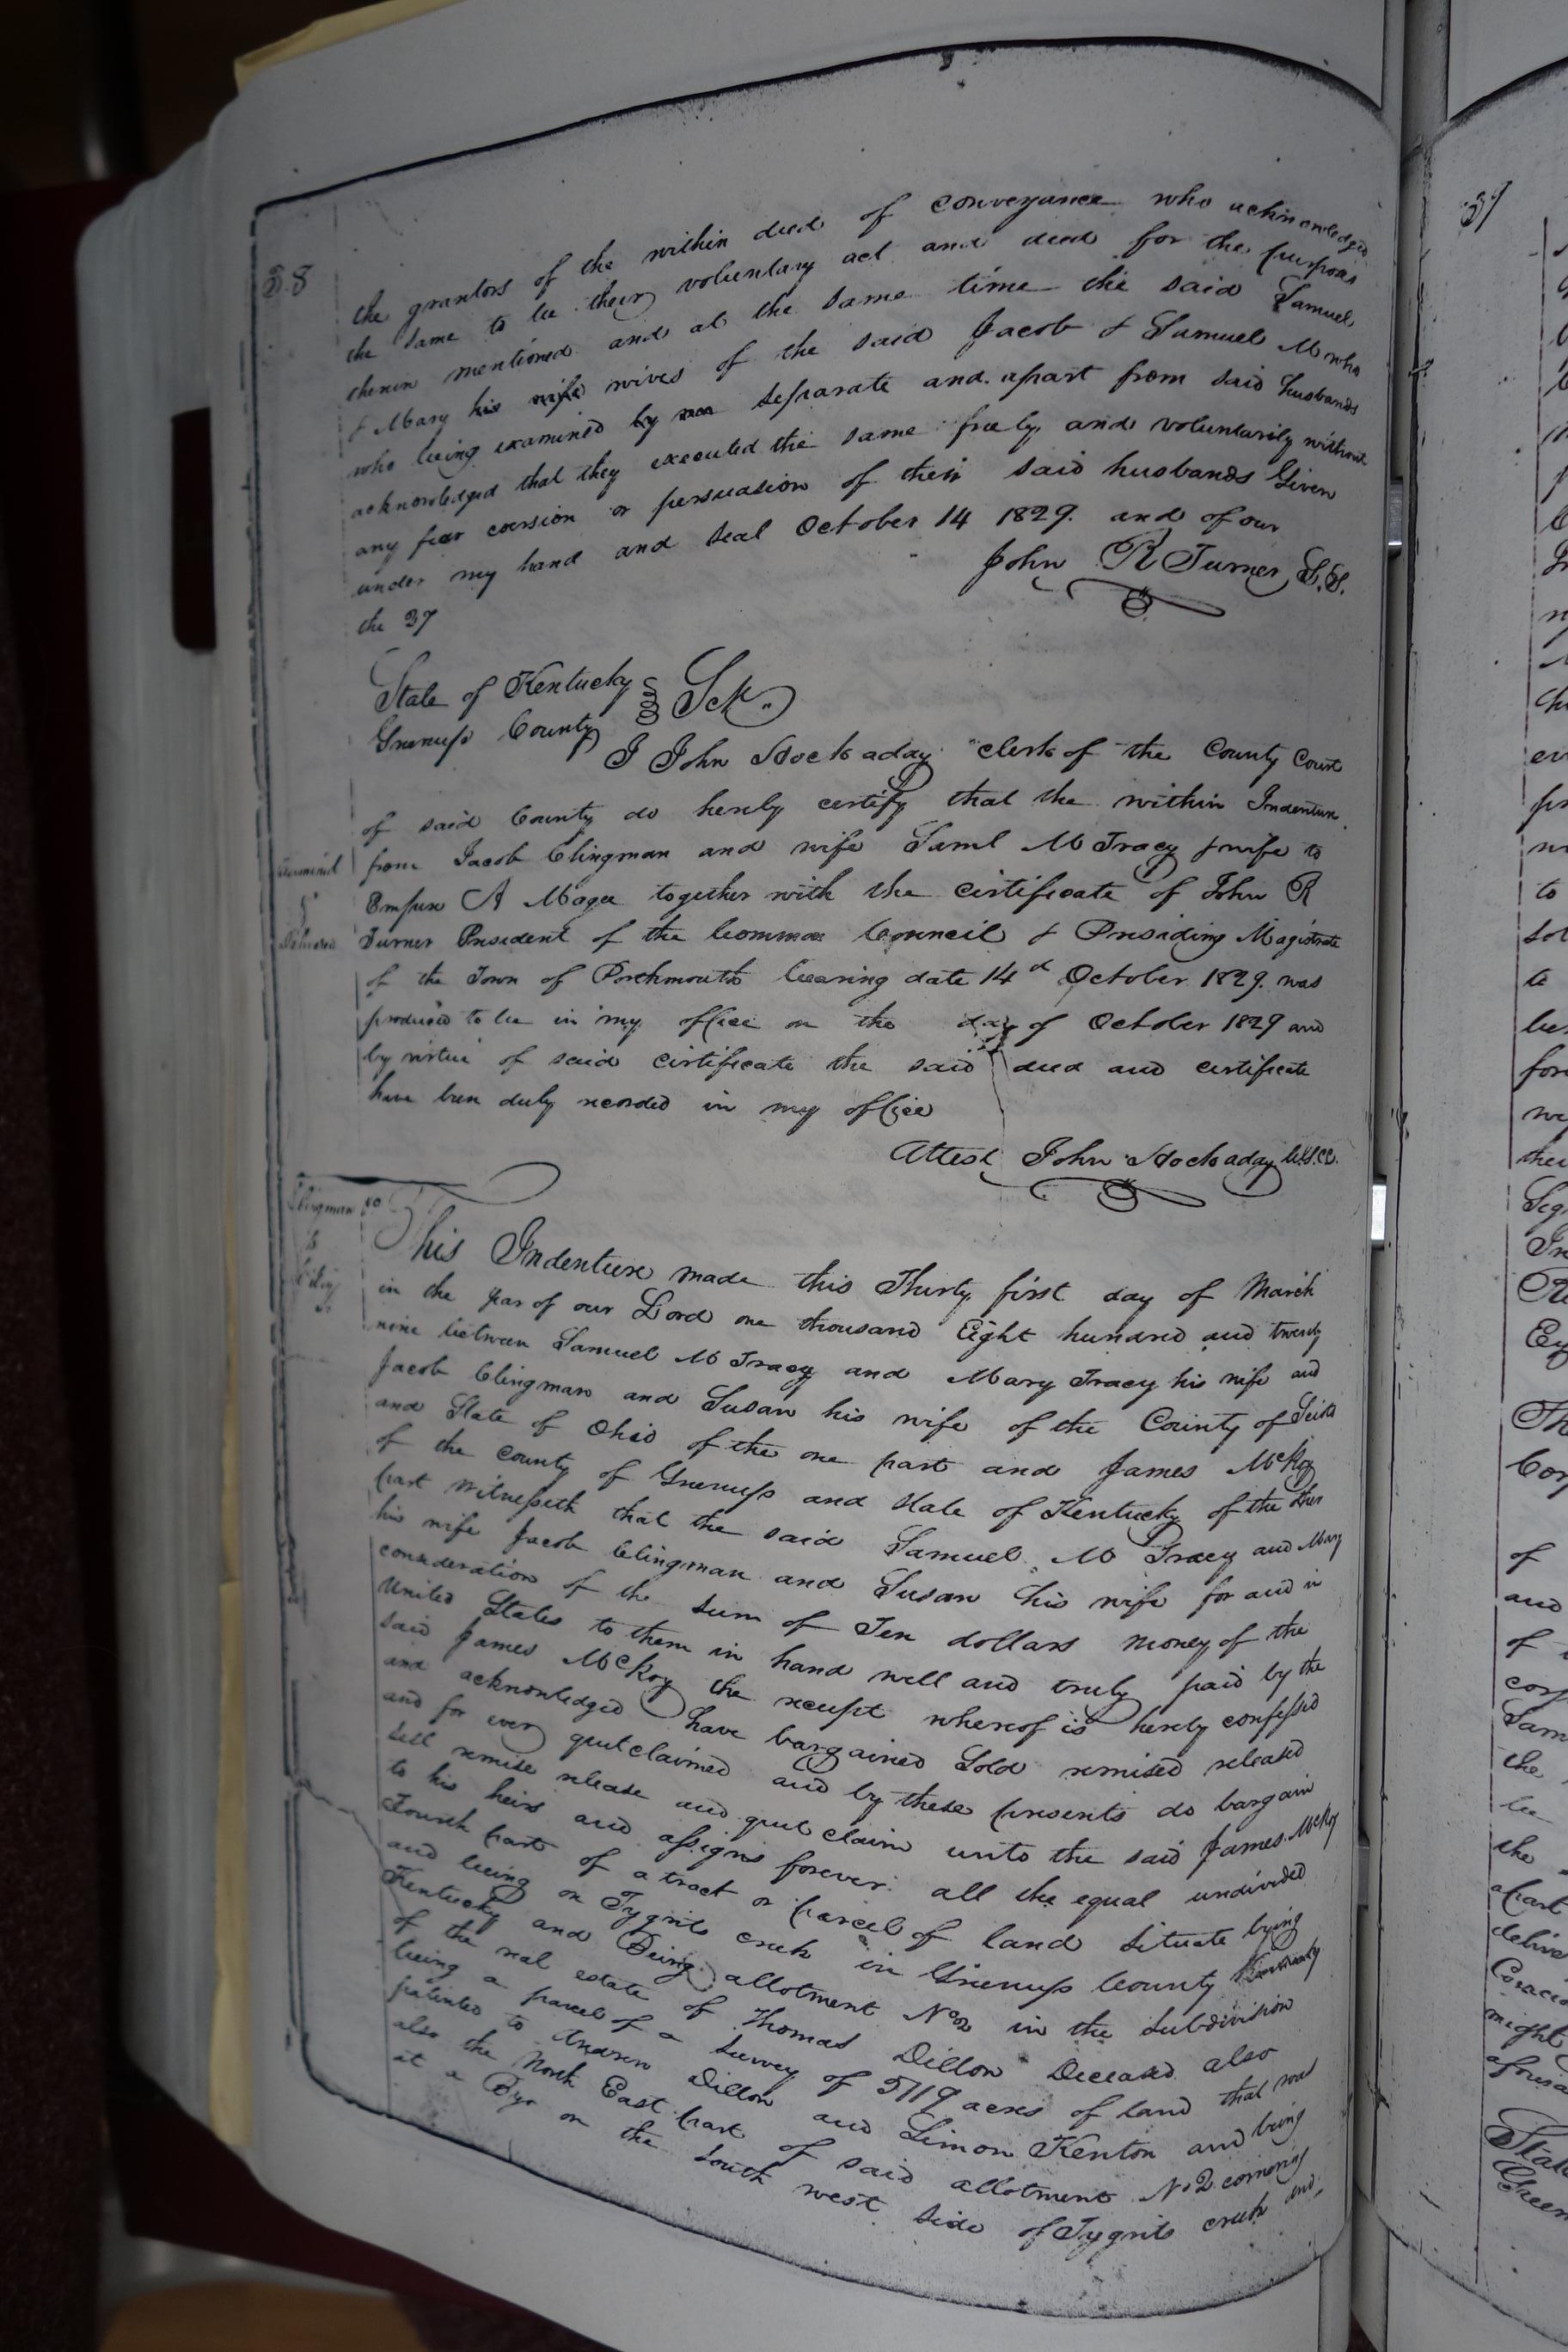 38
the grantors of the within deed of conveyance who acknowledged
the same to be their voluntary act and deed for the purposes
therein mentioned and at the same time the said Samuel
& Mary his wife wives of the said Jacob & Samuel M who
who being examined by me separate and apart from said husbands
acknowledged that they executed the same freely and voluntarily without
any fear coersion or persuasion of their said husbands Given
under my hand and seal October 14 1829. and of our
the 37
John R Turner S.S.
State of Kentucky
Greenup County Sct.
I John Hockaday clerk of the County Court
of said County do hereby certify that the within Indenture
from Jacob Clingman and wife Saml M Tracy & wife to
A Magee together with the certificate of John R
Turner President of the Common Council & Presiding Magistrate
of the Town of Portsmouth bearing date 14th October 1829. was
produced to be in my office on the day of October 1829 and
by virtue of said certificate the said deed and certificate
have been duly recorded in my office
Attest John Hockaday
Clingman &c
to
This Indenture made this Thirty first day of March
in the year of our Lord one thousand Eight hundred and twenty
nine between Samuel M Tracy and Mary Tracy his wife and
Jacob Clingman and Susan his wife of the County of Scioto
and State of Ohio of the one part and James McKoy
of the county of Greenup and State of Kentucky of the other
part Witnesseth that the said Samuel M Tracy and Mary
his wife Jacob Clingman and Susan his wife for and in
consideration of the sum of Ten dollars money of the
United States to them in hand well and truly paid by the
said James McKoy the receipt whereof is hereby confessed
and acknowledged have bargained Sold remised released
and for ever quitclaimed and by these presents do bargain
sell remise release and quit claim unto the said James McKoy
to his heirs and assigns forever. all the equal undivided
Fourth part of a tract or parcel of land situate lying
and being on Tygrits creek in Greenup County Kentucky
Kentucky and Being allotment No 2 in the Subdivision
of the real estate of Thomas Dillon Deceased also
being a parcel of a survey of 5119 acres of land that was
patented to Andrew Dillon and Simon Kenton and being
also the North East part of said allotment No 2 cornering
at a on the south west side of Tygrits creek and